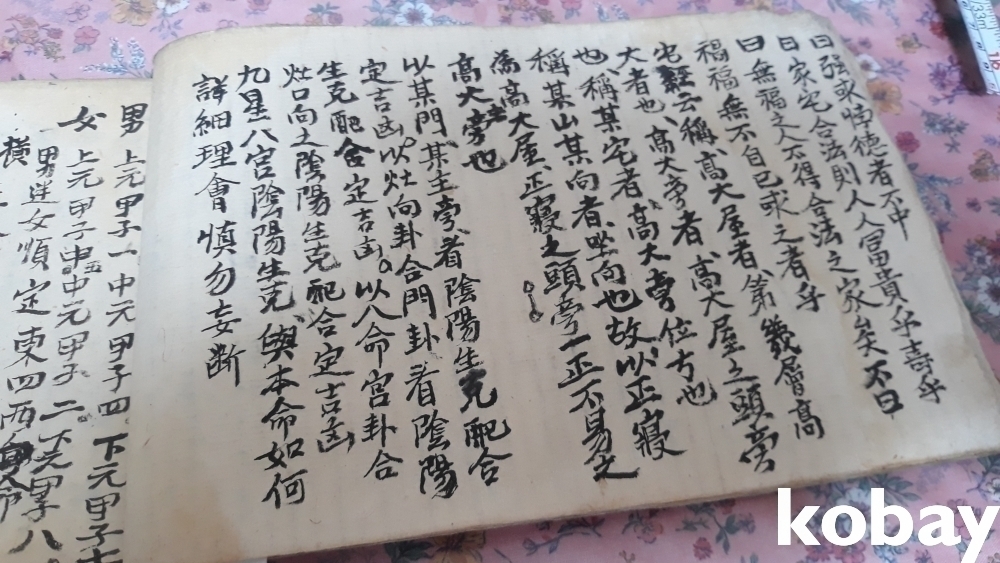 曰強或恃德者不中
曰家宅合法則人人富貴乎壽乎
曰無福之人不得合法之家矣不曰
禍福無不自己求之者乎
宅經云稱高大屋者第幾層高
大者也高大旁者高大屋之頭旁
也稱某宅者高大旁位方也
稱某山某向者坐向也故以正寢
為高大屋正寢之頭旁一正不易之
高大旁也
以某門某主旁看陰陽生克配合
定吉凶以灶向卦合門卦看陰陽
生克配合定吉凶以八命宮卦合
灶口向之陰陽生克配合定吉凶
九星八宮陰陽生克與本命如何
詳細理會慎勿妄斷
男 上元甲子一中元甲子四 下元甲子七
女 上元甲子五中元甲子二下元甲子八
男逆女順定東四西
kobay